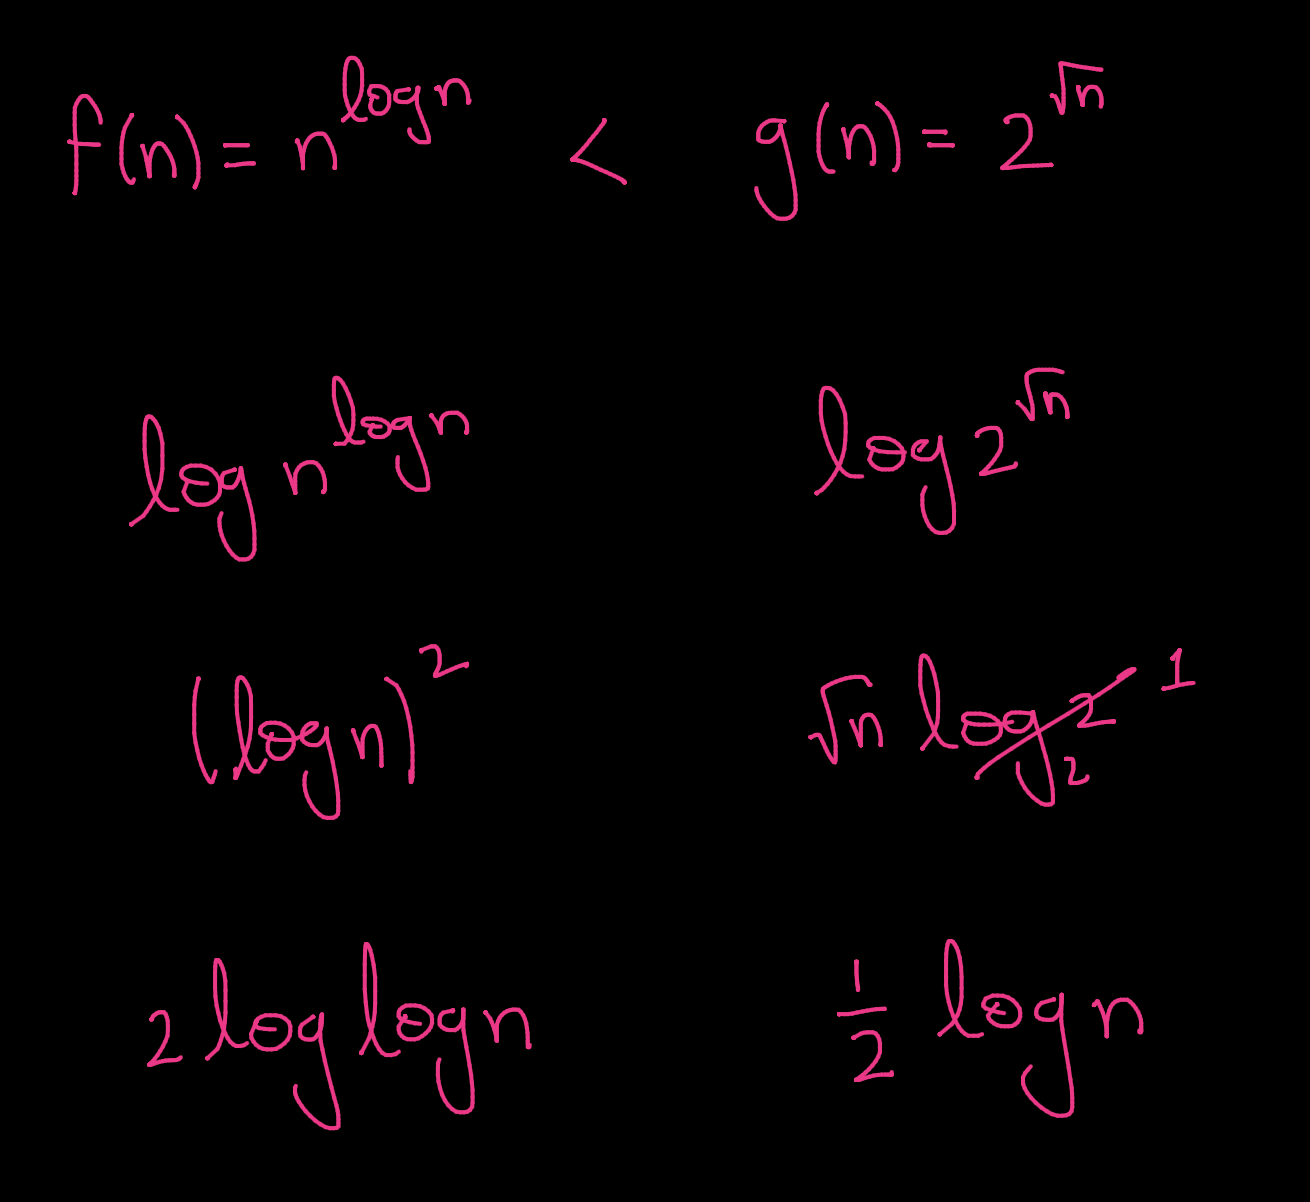 f(n) = n^{log n} < g(n) = 2^{√n}
log n^{log n} log 2^{√n}
(log n)^2 √n log_2 2 1
2 log log n 1/2 log n